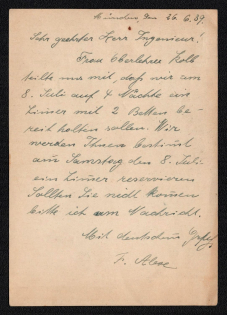 den 26.6.39.
Sehr geehrter Herr Ingenieur!
Frau Oberlehrer Kolb
teilte uns mit, daß wir am
8. Juli auf 4 Wochen ein
Zimmer mit 2 Betten be-
reit halten sollen. Wir
werden Ihnen bestimmt
am Samstag den 8. Juli
ein Zimmer reservieren
Sollten Sie nicht kommen
bitte ich um Nachricht.
Mit deutschem Gruß!
F.